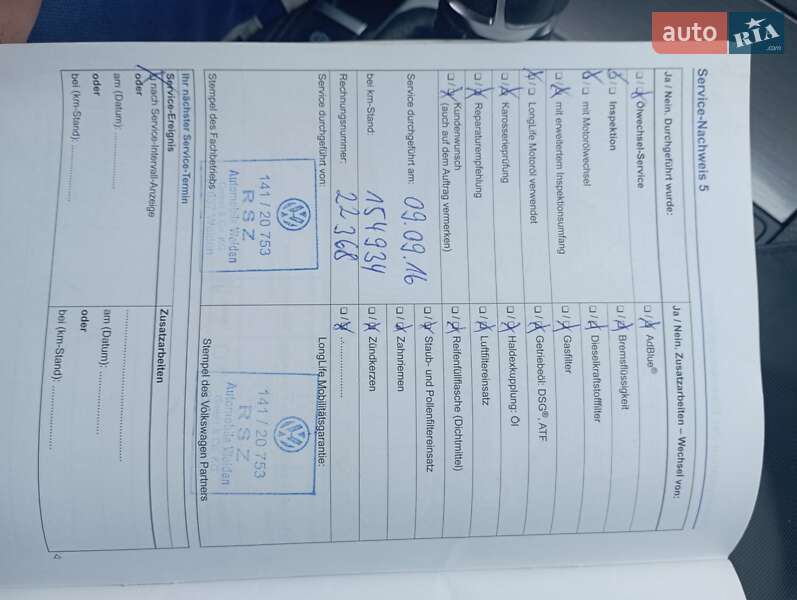 auto RIA .com
Service-Nachweis 5
Ja / Nein. Durchgeführt wurde:
❏ / ❏ Ölwechsel-Service
❏ / ❏ Inspektion
❏ / ❏ mit Motorölwechsel
❏ / ❏ mit erweitertem Inspektionsumfang
❏ / ❏ LongLife Motoröl verwendet
❏ / ❏ Karosserieprüfung
❏ / ❏ Reparaturempfehlung
❏ / ❏ Kundenwunsch
(auch auf dem Auftrag vermerken)
Service durchgeführt am: 09.09.16
bei km-Stand: 154934
Rechnungsnummer: 22368
Service durchgeführt von:
141 / 20 753
R S Z
Automobile Weiden
Stempel des Fachbetriebs
Ja / Nein. Zusatzarbeiten – Wechsel von:
❏ / ❏ AdBlue®
❏ / ❏ Bremsflüssigkeit
❏ / ❏ Dieselkraftstofffilter
❏ / ❏ Gasfilter
❏ / ❏ Getriebeöl: DSG®, ATF
❏ / ❏ Haldexkupplung: Öl
❏ / ❏ Luftfiltereinsatz
❏ / ❏ Reifenfüllflasche (Dichtmittel)
❏ / ❏ Staub- und Pollenfiltereinsatz
❏ / ❏ Zahnriemen
❏ / ❏ Zündkerzen
❏ / ❏ ..................
LongLife Mobilitätsgarantie:
141 / 20 753
R S Z
Automobile Weiden
Stempel des Volkswagen Partners
Ihr nächster Service-Termin
Service-Ereignis
❏ nach Service-Intervall-Anzeige
oder
am (Datum): ..................
oder
bei (km-Stand): ..................
Zusatzarbeiten
..................
am (Datum): ..................
oder
bei (km-Stand): ..................
4